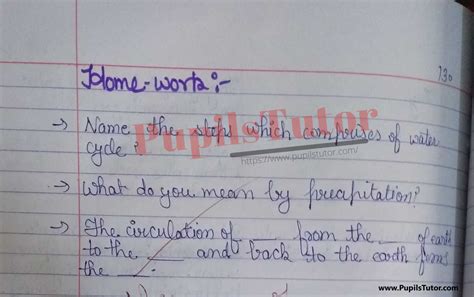 130
Home-work:-
→ Name the steps which compouses of water
cycle?
PupilsTutor
https://www.pupilstutor.com/
→ What do you mean by precapitation?
→ The circulation of ___ from the __ of earth
to the ___ and back to the earth forms
the ___.
www.PupilsTutor.Com